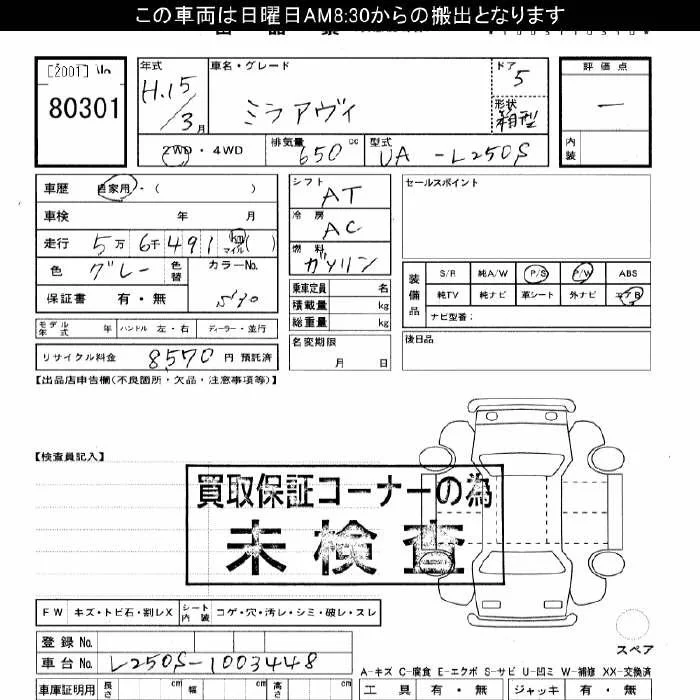 この車両は日曜日AM8:30からの搬出となります
[2001] No
80301
年式 車名・グレード ドア 評価点
H.15/3月 ミラアヴィ 5 一
形状 箱型
内装
2WD・4WD 排気量 650 cc 型式 UA-L250S
車歴 自家用・( )
車検 年 月
走行 5万6千491 km マイル( )
色 グレー 色替 カラーNo.
保証書 有・無
シフト AT
冷房 AC
燃料 ガソリン
乗車定員 名
積載量 kg
総重量 kg
名変期限
月 日
セールスポイント
装備品
S/R 純A/W P/S P/W ABS
純TV 純ナビ 革シート 外ナビ エアB
ナビ型番:
後日品
モデル年式 年 ハンドル 左・右 ディーラー・並行
リサイクル料金 8570 円 預託済
【出品店申告欄(不良箇所・欠品・注意事項等)】
【検査員記入】
買取保証コーナーの為
未検査
FW キズ・トビ石・割レX シート内装 コゲ・穴・汚レ・シミ・破レ・スレ
登録 No.
車台 No. L250S-1003448
スペア
A-キズ C-腐食 E-エクボ S-サビ U-凹ミ W-補修 XX-交換済
車庫証明用 長さ cm 幅 cm 高さ cm 工具 有・無 ジャッキ 有・無